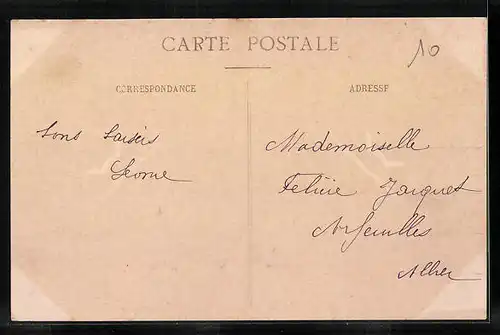 CARTE POSTALE
10
CORRESPONDANCE
ADRESSE
Bons baisers
Leonie
Mademoiselle
Felicie Jacquet
Arfeuilles
Allier